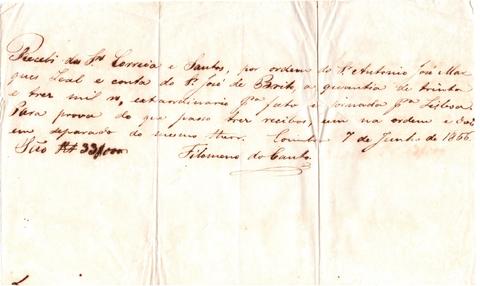 Recebi dos Srs Correia e Santos, por ordem do Sr Antonio José Mar
ques Leal e conta do Sr José de Brito, a quantia de trinta
e tres mil rs, extraordinario pa fato e pa Lisboa.
Para prova do que passo tres recibos um na ordem e dois
em separado do mesmo theor. Coimbra 7 de Junho de 1866.
São Rs 33$000
Filomeno do Canto